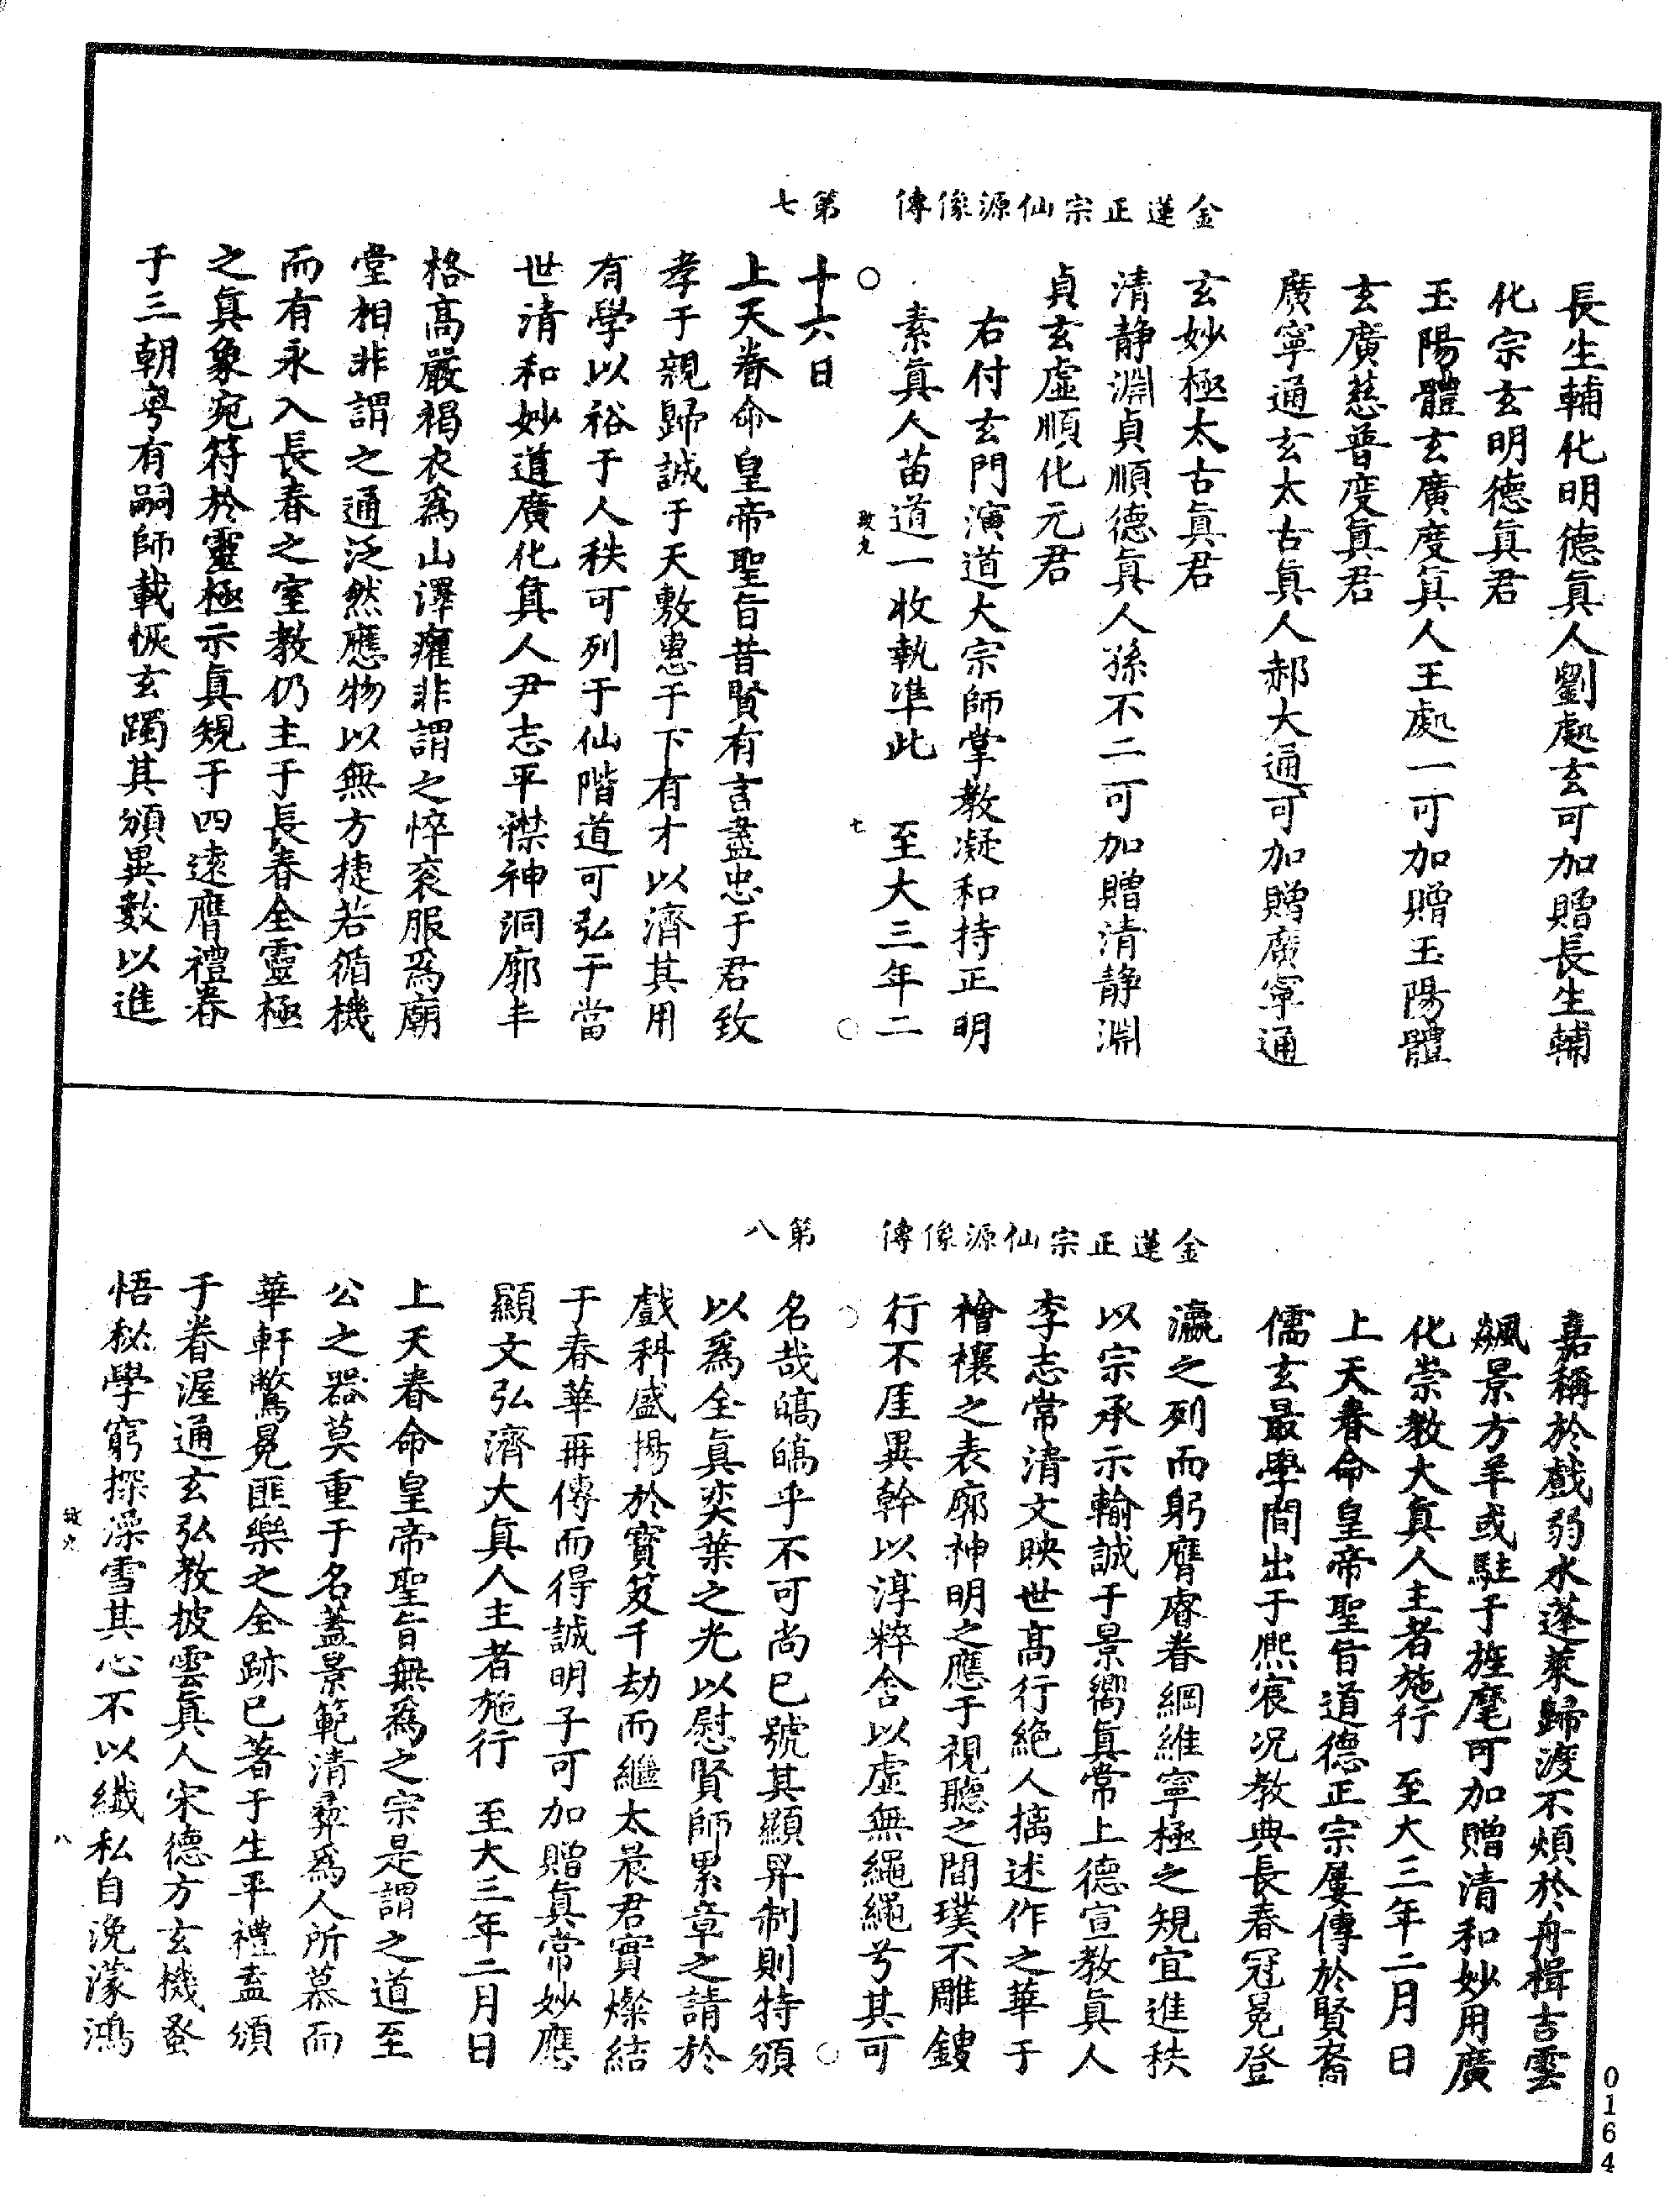 金蓮正宗仙源像傳　第七
長生輔化明德眞人劉處玄可加贈長生輔
化宗玄明德眞君
玉陽體玄廣度眞人王處一可加贈玉陽體
玄廣慈普度眞君
廣寧通玄太古眞人郝大通可加贈廣寧通
玄妙極太古眞君
清靜淵貞順德眞人孫不二可加贈清靜淵
貞玄虛順化元君
右付玄門演道大宗師掌教凝和持正明
素眞人苗道一收執准此　至大三年二
七
十六日
上天眷命皇帝聖旨昔賢有言盡忠于君致
孝于親歸誠于天敷惠于下有才以濟其用
有學以裕于人秩可列于仙階道可弘于當
世清和妙道廣化眞人尹志平襟神洞廓丰
格高嚴褐衣爲山澤癯非謂之悴衮服爲廟
堂相非謂之通泛然應物以無方捷若循機
而有永入長春之室教仍主于長春全靈極
之眞象宛符於靈極示眞規于四遠膺禮眷
于三朝粤有嗣師載恢玄躅其頒異數以進
金蓮正宗仙源像傳　第八
嘉稱於戲弱水蓬萊歸渡不煩於舟楫吉雲
飆景方羊或駐于旌麾可加贈清和妙用廣
化崇教大眞人主者施行　至大三年二月　日
上天眷命皇帝聖旨道德正宗屢傳於賢裔
儒玄最學間出于熙宸况教典長春冠冕登
瀛之列而躬膺睿眷綱維寧極之規宜進秩
以宗承示輸誠于景嚮眞常上德宣教眞人
李志常清文映世高行絶人摛述作之華于
檜禳之表廓神明之應于視聽之間璞不雕鏤
行不厓異幹以淳粹舍以虛無繩繩兮其可
名哉皜皜乎不可尚已號其顯昇制則特頒
以爲全眞奕葉之光以慰賢師累章之請於
戲科盛揚於寳笈千劫而繼太晨君實燦結
于春華再傳而得誠明子可加贈眞常妙應
顯文弘濟大眞人主者施行　至大三年二月日
上天眷命皇帝聖旨無爲之宗是謂之道至
公之器莫重于名蓋景範清彝爲人所慕而
華軒鷩冕匪樂之全跡已著于生平禮盍頒
于眷渥通玄弘教披雲眞人宋德方玄機蚤
悟秘學窮探澡雪其心不以纖私自浼濛鴻
八
0164